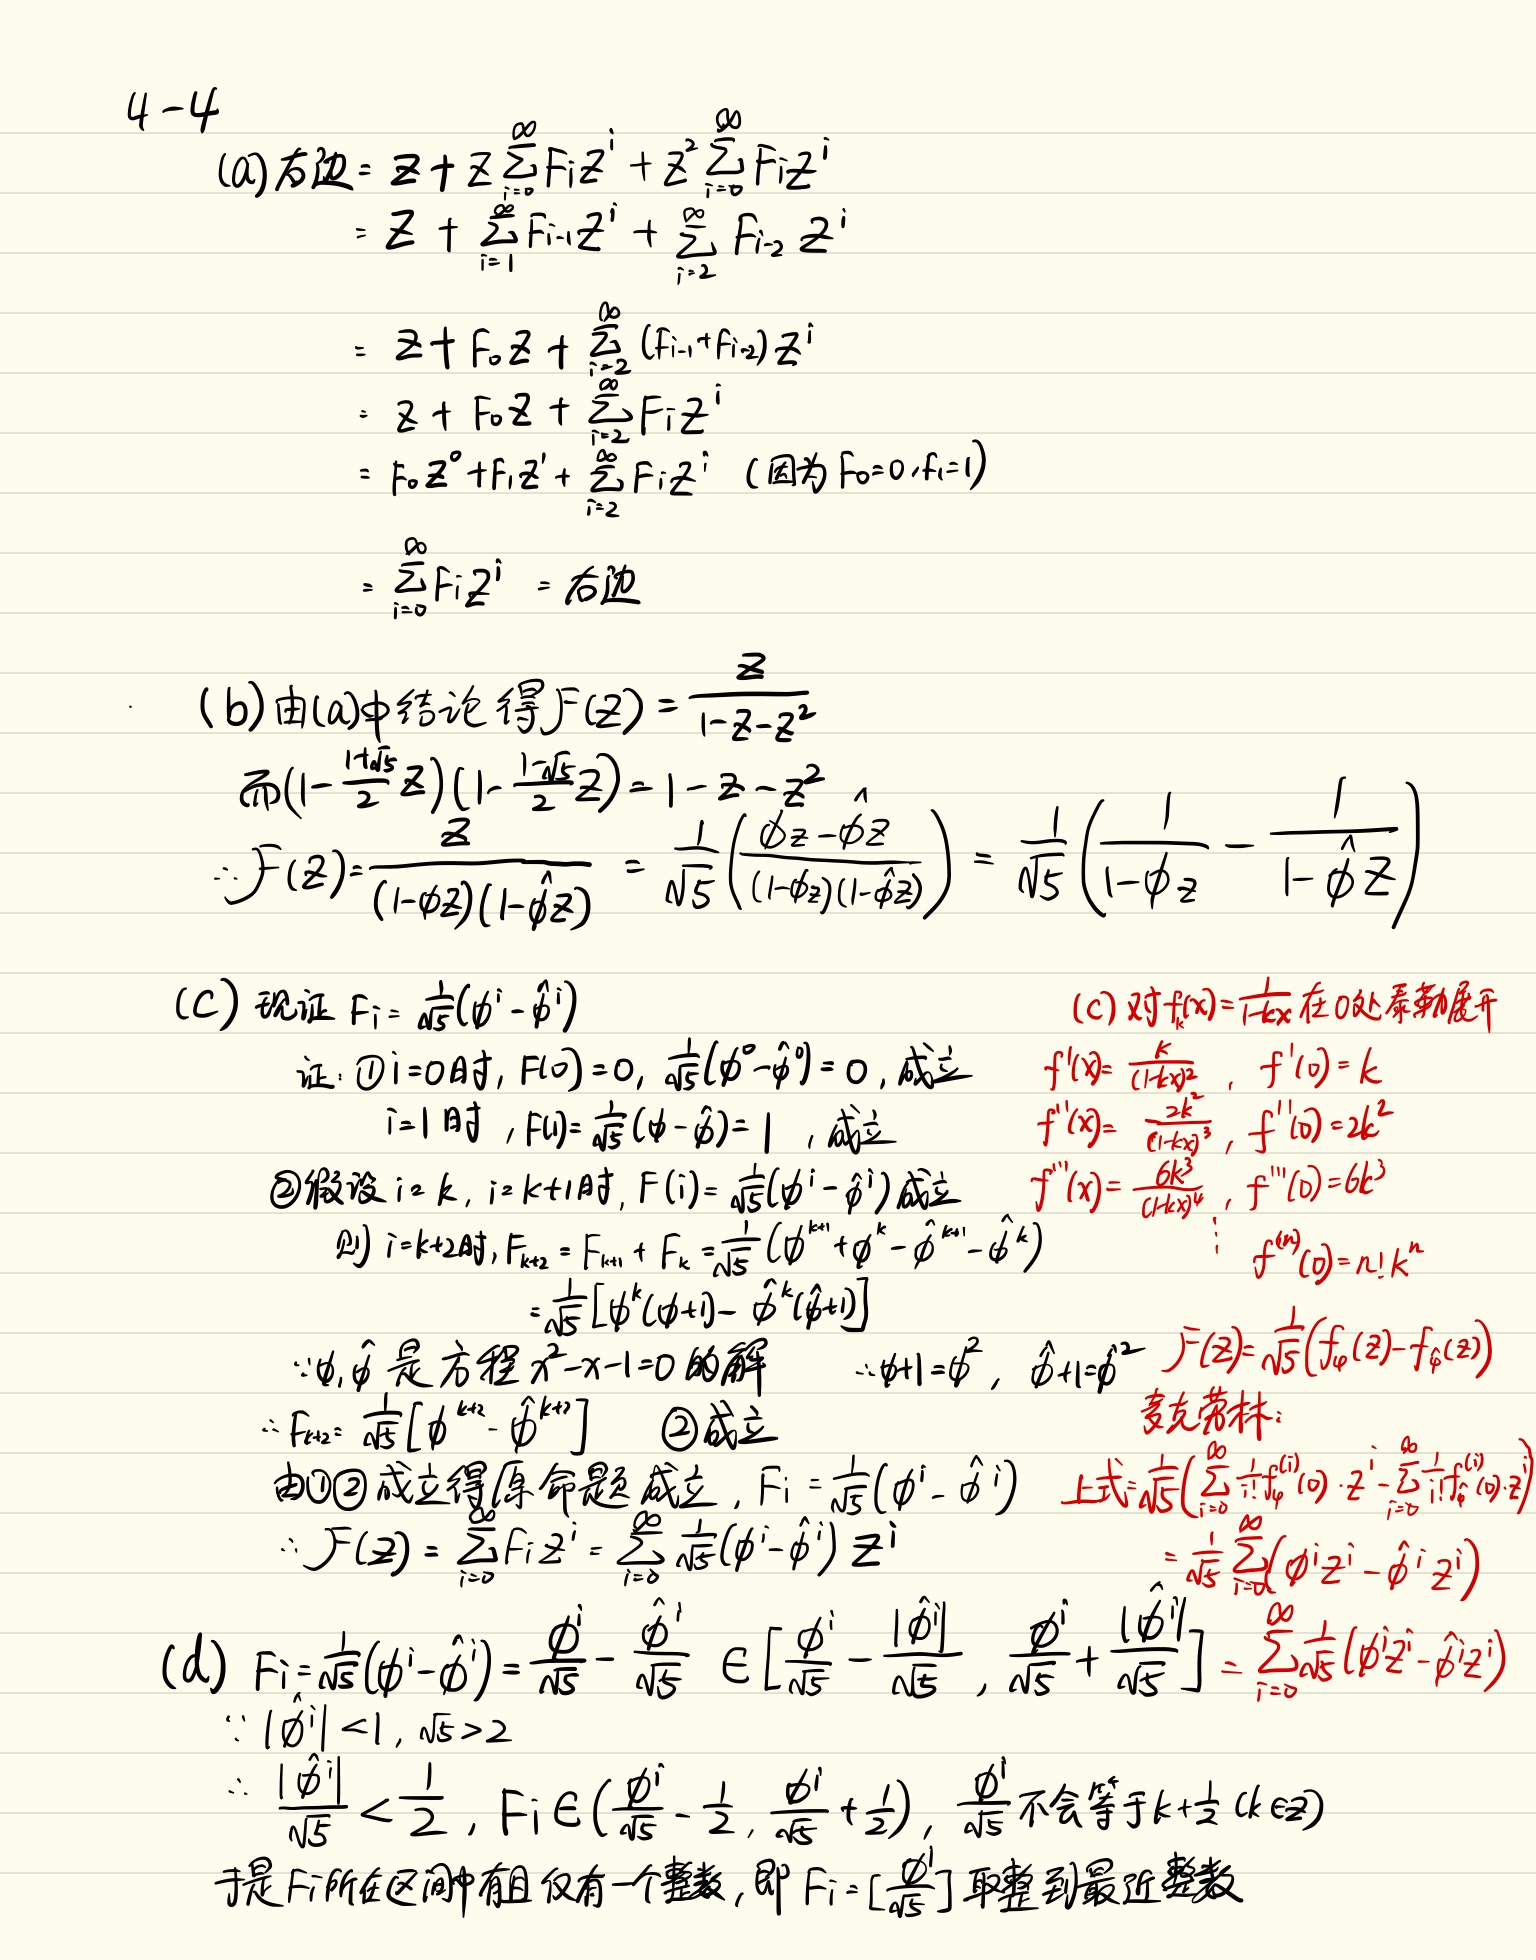 4-4
(a) 右边 = z + z∑_{i=0}^{∞} F_i z^i + z^2 ∑_{i=0}^{∞} F_i z^i
= z + ∑_{i=1}^{∞} F_{i-1} z^i + ∑_{i=2}^{∞} F_{i-2} z^i
= z + F_0 z + ∑_{i=2}^{∞} (f_{i-1} + f_{i-2}) z^i
= z + F_0 z + ∑_{i=2}^{∞} F_i z^i
= F_0 z^0 + F_1 z^1 + ∑_{i=2}^{∞} F_i z^i (因为 F_0=0, f_1=1)
= ∑_{i=0}^{∞} F_i z^i = 右边
(b) 由(a)中结论得 F(z) = z/(1-z-z^2)
而(1 - (1+√5)/2 z)(1 - (1-√5)/2 z) = 1 - z - z^2
∴ F(z) = z/((1-φz)(1-φ̂z)) = 1/√5 ((φz-φ̂z)/((1-φz)(1-φ̂z))) = 1/√5 (1/(1-φz) - 1/(1-φ̂z))
(C) 现证 F_i = 1/√5(φ^i - φ̂^i)
证: ① i=0时, F(0)=0, 1/√5(φ^0-φ̂^0)=0, 成立
i=1时, F(1)=1/√5(φ-φ̂)=1, 成立
②假设 i=k, i=k+1时, F(i)=1/√5(φ^i-φ̂^i)成立
则 i=k+2时, F_{k+2} = F_{k+1} + F_k = 1/√5(φ^{k+1}+φ^k-φ̂^{k+1}-φ̂^k)
= 1/√5[φ^k(φ+1) - φ̂^k(φ̂+1)]
∵φ,φ̂ 是方程 x^2-x-1=0 的解 ∴φ+1=φ^2, φ̂+1=φ̂^2
∴F_{k+2} = 1/√5[φ^{k+2} - φ̂^{k+2}] ②成立
由①②成立得原命题成立, F_i = 1/√5(φ^i - φ̂^i)
∴ F(z) = ∑_{i=0}^{∞} F_i z^i = ∑_{i=0}^{∞} 1/√5(φ^i-φ̂^i) z^i
(c) 对 f_k(x) = 1/(1-kx) 在0处泰勒展开
f'(x) = k/(1-kx)^2, f'(0)=k
f''(x) = 2k^2/(1-kx)^3, f''(0)=2k^2
f'''(x) = 6k^3/(1-kx)^4, f'''(0)=6k^3
⋮ f^{(n)}(0)=n!k^n
F(z) = 1/√5(f_φ(z) - f_φ̂(z))
麦克劳林:
上式 = 1/√5(∑_{i=0}^{∞} 1/i! f_φ^{(i)}(0)·z^i - ∑_{i=0}^{∞} 1/i! f_φ̂^{(i)}(0)·z^i)
= 1/√5 ∑_{i=0}^{∞}(φ^i z^i - φ̂^i z^i)
= ∑_{i=0}^{∞} 1/√5(φ^i z^i - φ̂^i z^i)
(d) F_i = 1/√5(φ^i-φ̂^i) = φ^i/√5 - φ̂^i/√5 ∈ [φ^i/√5 - |φ̂^i|/√5, φ^i/√5 + |φ̂^i|/√5]
∵ |φ̂^i|<1, √5>2
∴ |φ̂^i|/√5 < 1/2, F_i∈(φ^i/√5 - 1/2, φ^i/√5 + 1/2), φ^i/√5 不会等于 k+1/2 (k∈z)
于是 F_i 所在区间中有且仅有一个整数, 即 F_i = [φ^i/√5] 取整到最近整数